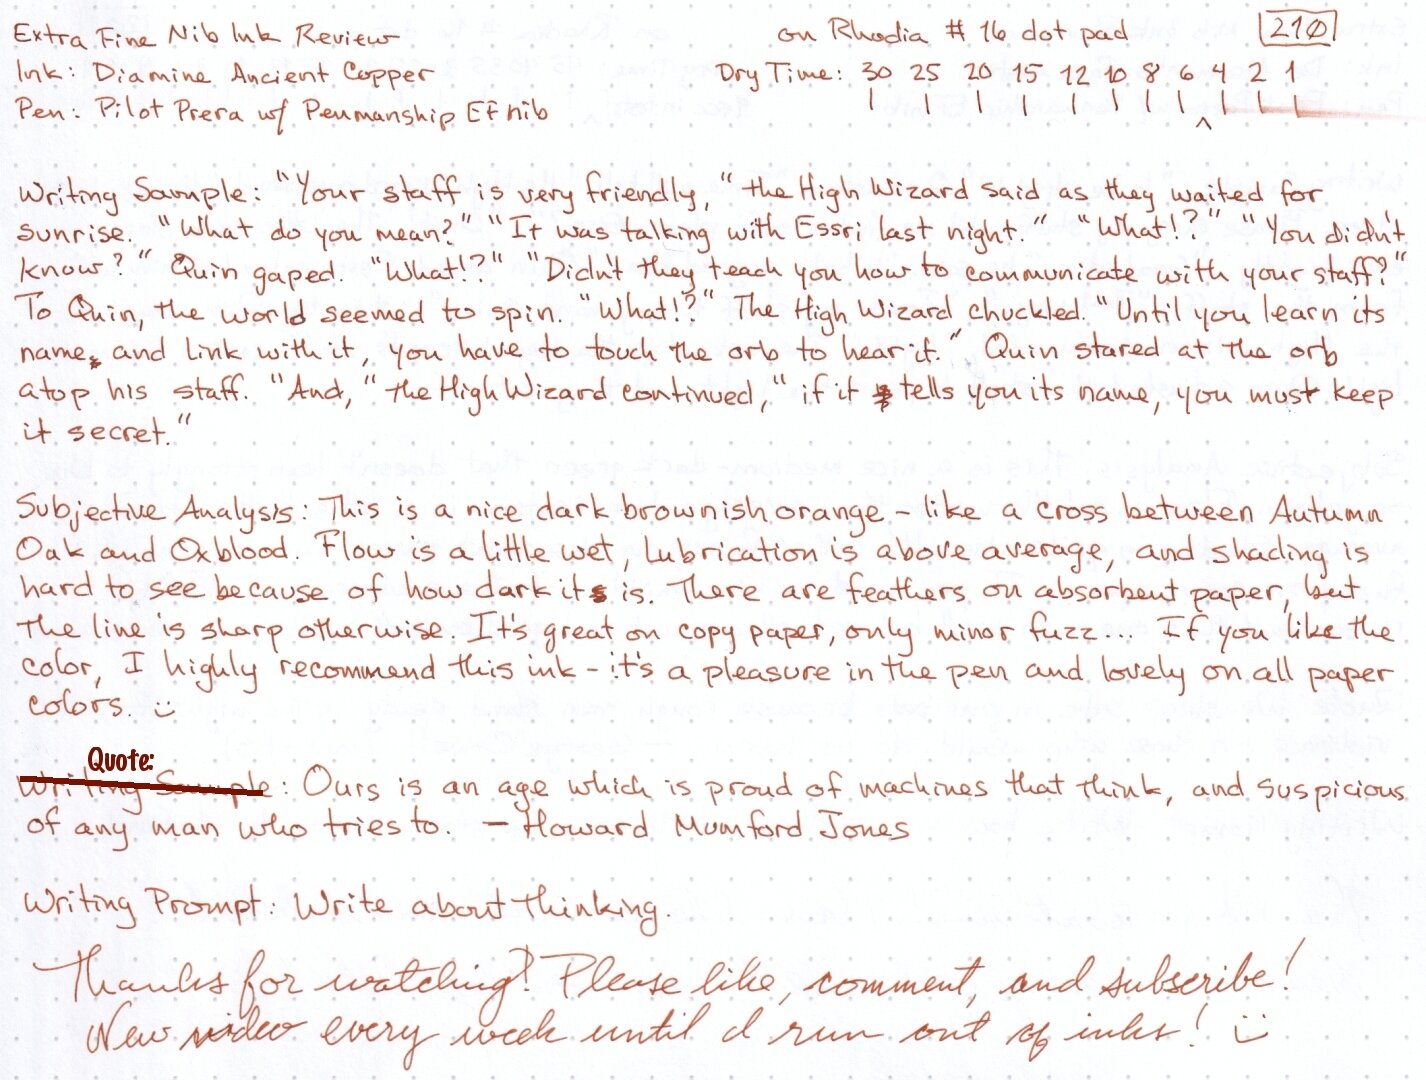 Extra Fine Nib Ink Review on Rhodia # 16 dot pad 210
Ink: Diamine Ancient Copper Dry Time: 30 25 20 15 12 10 8 6 4 2 1
Pen: Pilot Prera w/ Penmanship EF nib ^
Writing Sample: "Your staff is very friendly," the High Wizard said as they waited for
sunrise. "What do you mean?" "It was talking with Essri last night." "What!?" "You didn't
know?" Quin gaped. "What!?" "Didn't they teach you how to communicate with your staff?"
To Quin, the world seemed to spin. "What!?" The High Wizard chuckled. "Until you learn its
name, and link with it, you have to touch the orb to hear it." Quin stared at the orb
atop his staff. "And," the High Wizard continued, "if it tells you its name, you must keep
it secret."
Subjective Analysis: This is a nice dark brownish orange - like a cross between Autumn
Oak and Oxblood. Flow is a little wet, lubrication is above average, and shading is
hard to see because of how dark it is. There are feathers on absorbent paper, but
the line is sharp otherwise. It's great on copy paper, only minor fuzz... If you like the
color, I highly recommend this ink - it's a pleasure in the pen and lovely on all paper
colors. :)
Quote:
Writing Sample: Ours is an age which is proud of machines that think, and suspicious
of any man who tries to. - Howard Mumford Jones
Writing Prompt: Write about thinking.
Thanks for watching! Please like, comment, and subscribe!
New video every week until I run out of inks! :)